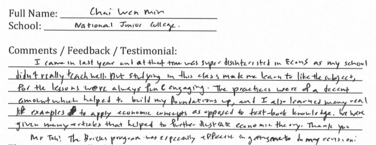 Full Name: Chai Wen Min
School: National Junior College.
Comments / Feedback / Testimonial:
I came in last year and at that time was super disinterested in Econs as my school
didn't really teach well. But studying in this class made me learn to like the subject,
for the lessons were always fun & engaging. The practices were of a decent
amount which helped to build my foundations up, and I also learned many real
life examples to apply economic concepts as opposed to text-book knowledge. We were
given many articles that helped to further illustrate economic theory. Thank you
Mr Toh! The program was especially efficient in to my revision!